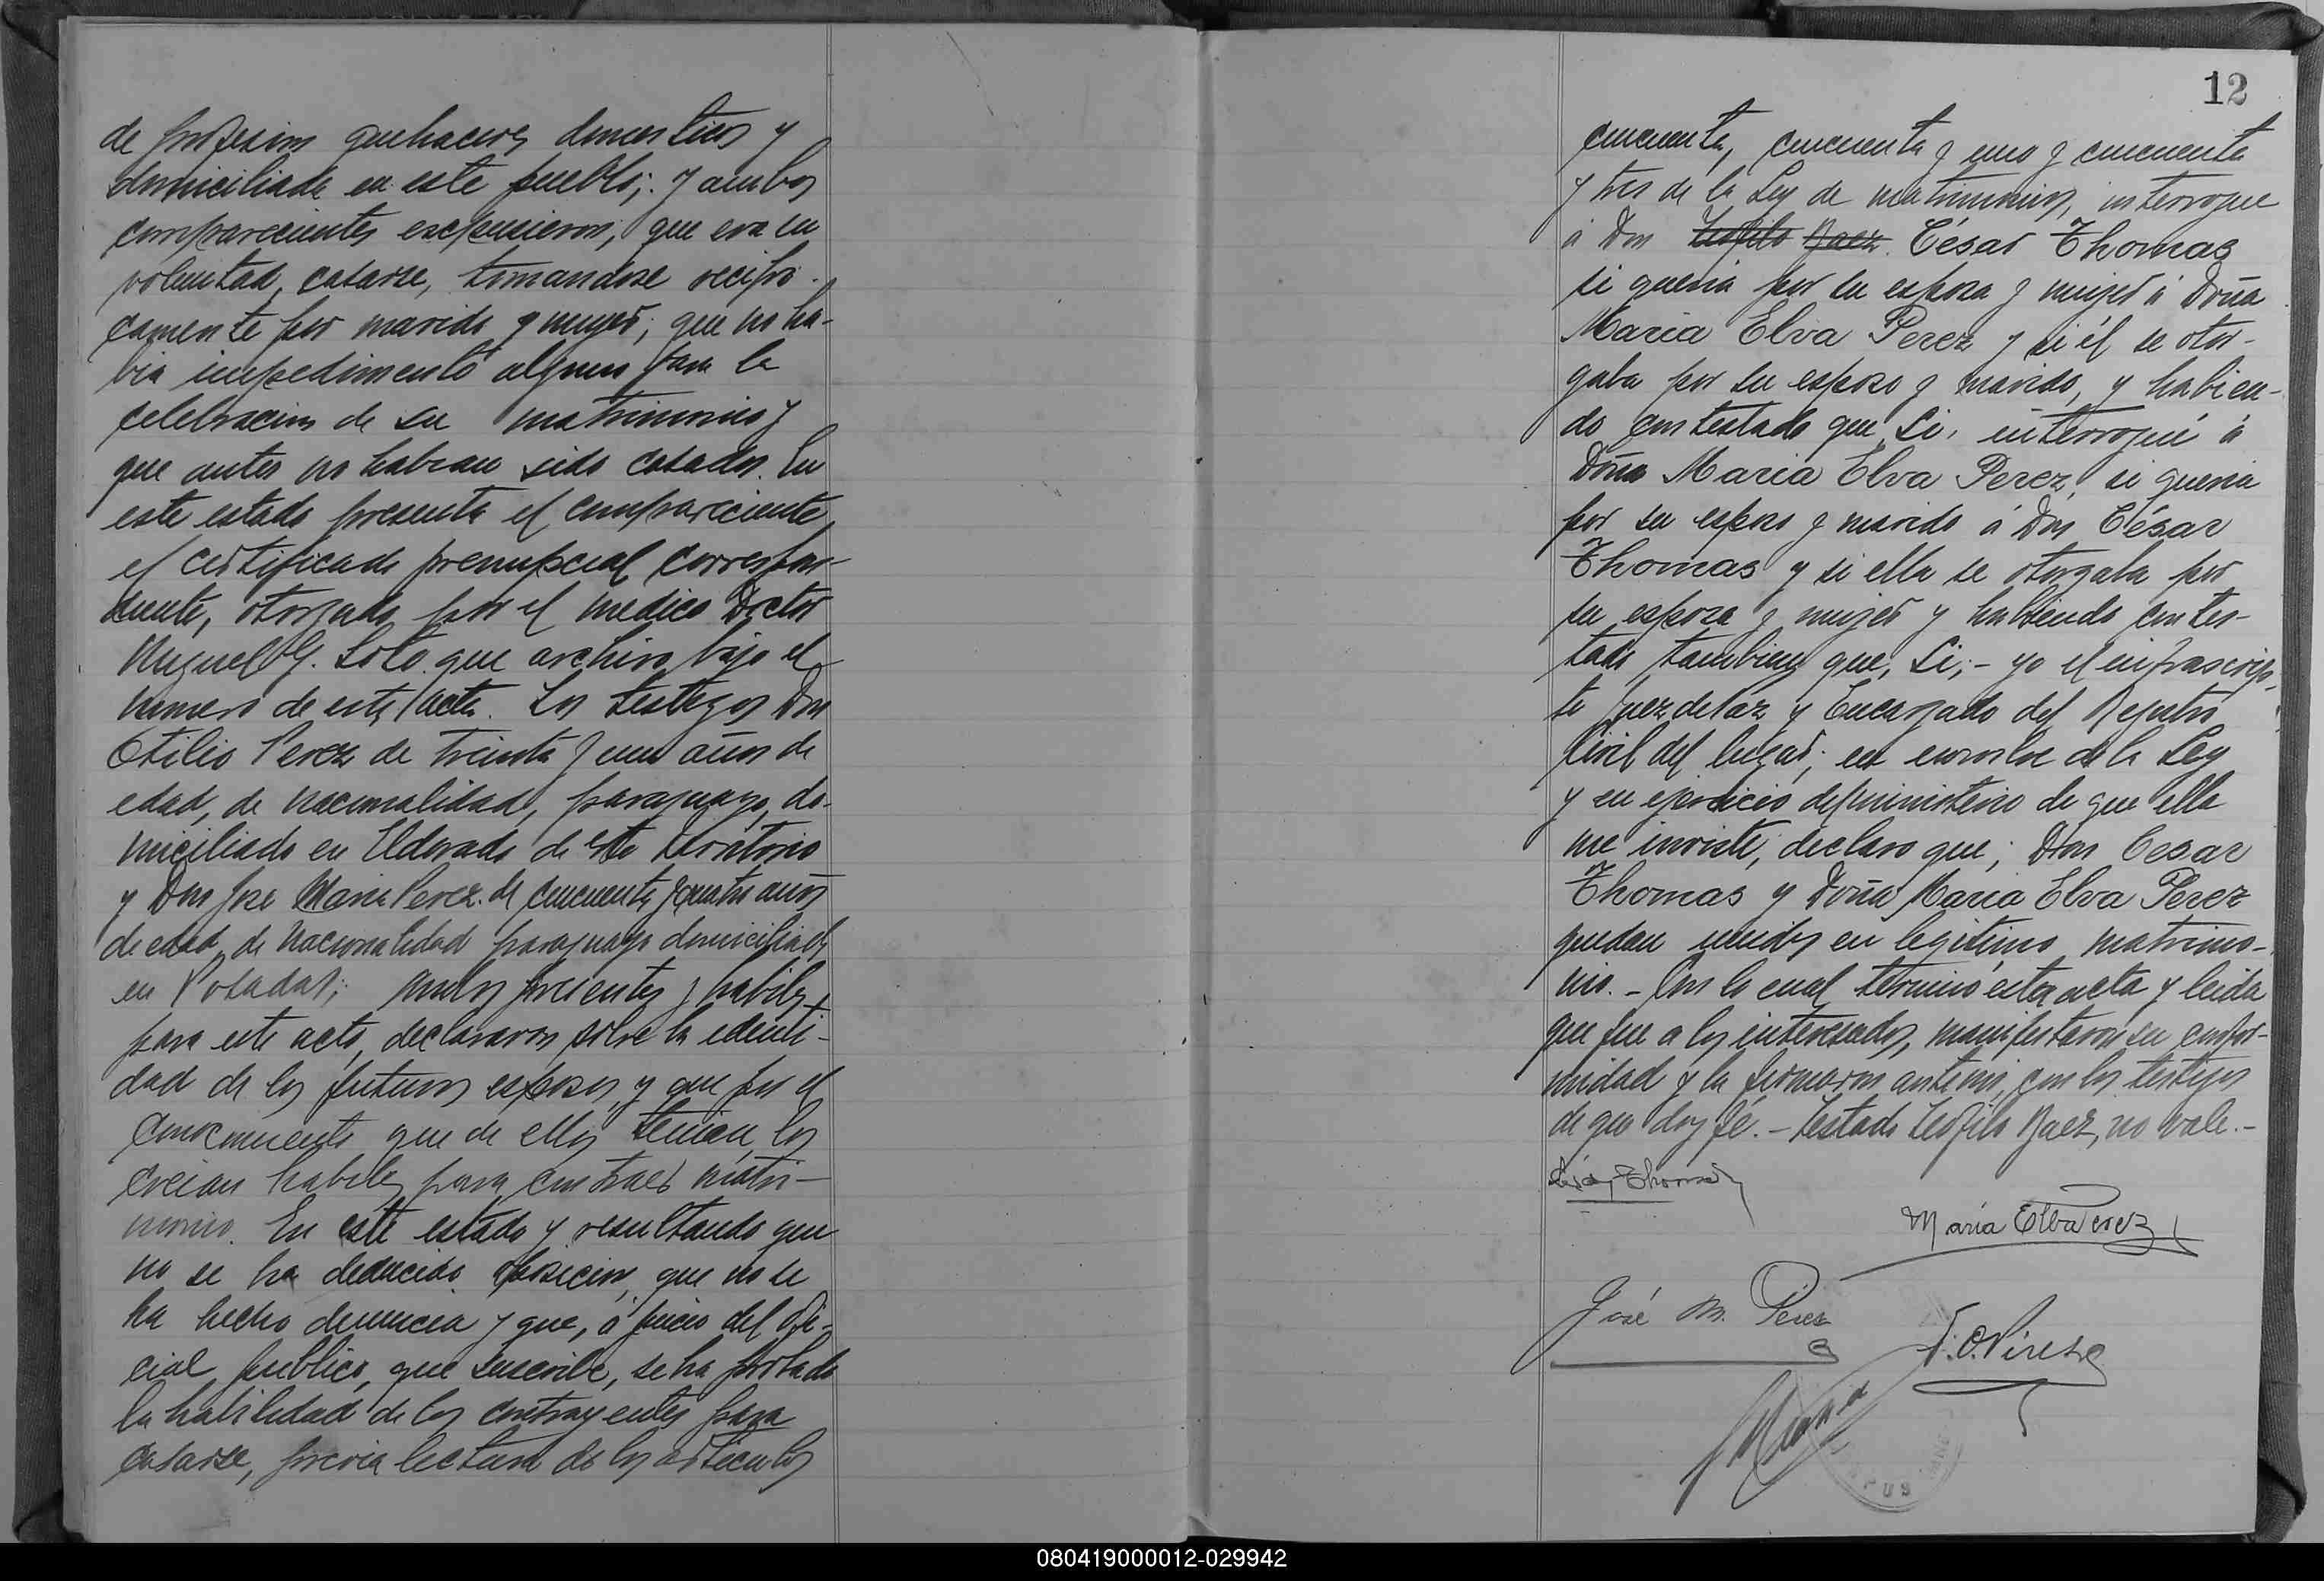 de profesion quehaceres domesticos y
domiciliada en este pueblo; y ambos
comparecientes expusieron, que era su
voluntad, casarse, tomandose recipro-
camente por marido y mujer; que no ha-
bia impedimento alguno para la
celebracion de su matrimonio y
que antes no habian sido casados. En
este estado presenta el compareciente
el certificado prenupcial correspon-
diente, otorgado por el medico Doctor
Miguel G. Soto que archivo bajo el
numero de esta acta. Los testigos Don
Otilio Perez de treinta y un años de
edad, de nacionalidad, paraguayo, do-
miciliado en Eldorado de este territorio
y Don Jose Maria Perez de cincuenta y cuatro años
de edad, de nacionalidad paraguaya domiciliado
en Posadas; ambos presentes y habiles
para este acto, declararon sobre la identi-
dad de los futuros esposos, y que por el
conocimiento que de ellos tenian, los
creian habiles para contraer matri-
monio. En este estado y resultando que
no se ha deducido oposicion, que no se
ha hecho denuncia y que, á juicio del Ofi-
cial publico, que suscribe, se ha probado
la habilidad de los contrayentes para
casarse, previa lectura de los articulos
12
cincuenta, cincuenta y uno y cincuenta
y tres de la Ley de matrimonios, interrogue
á Don Teofilo Baez. César Thomas
si queria por su esposa y mujer á Doña
Maria Elva Perez y si él se otor-
gaba por su esposo y marido, y habien-
do contestado que, Si, interrogué á
Doña Maria Elva Perez, si queria
por su esposo y marido á Don César
Thomas y si ella se otorgaba por
su esposa y mujer y habiendo contes-
tado tambien que, Si;- yo el infrascrip-
to Juez de Paz y Encargado del Registro
Civil del lugar; en nombre de la Ley
y en ejercicio del ministerio de que ella
me inviste, declaro que; Don Cesar
Thomas y Doña Maria Elva Perez
quedan unidos en legitimo matrimo-
nio.- Con lo cual terminó esta acta y leida
que fue a los interesados, manifestaron su confor-
midad y la firmaron ante mi, con los testigos
de que doy fé.- Testado Teofilo Baez, no vale.-
César Thomas
Maria Elba Perez
José M. Pérez
080419000012-029942